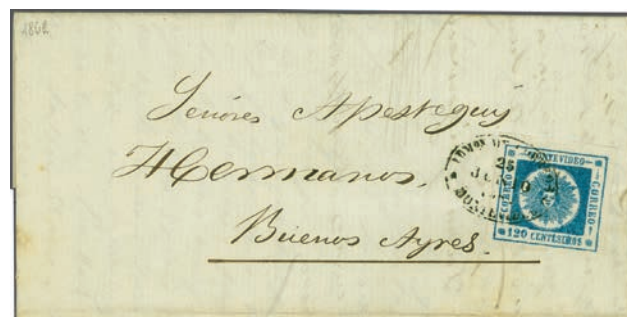 1862
Señores Apesteguy
Hermanos.
Buenos Ayres.
25
MONTEVIDEO
CORREO
CORREO
120 CENTESIMOS